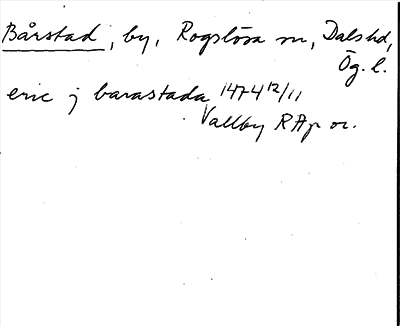 Bårstad, by, Rogslösa sn, Dals hd,
Ög. l.
eric j barastada 1474 12/11
Vallby RAp or.